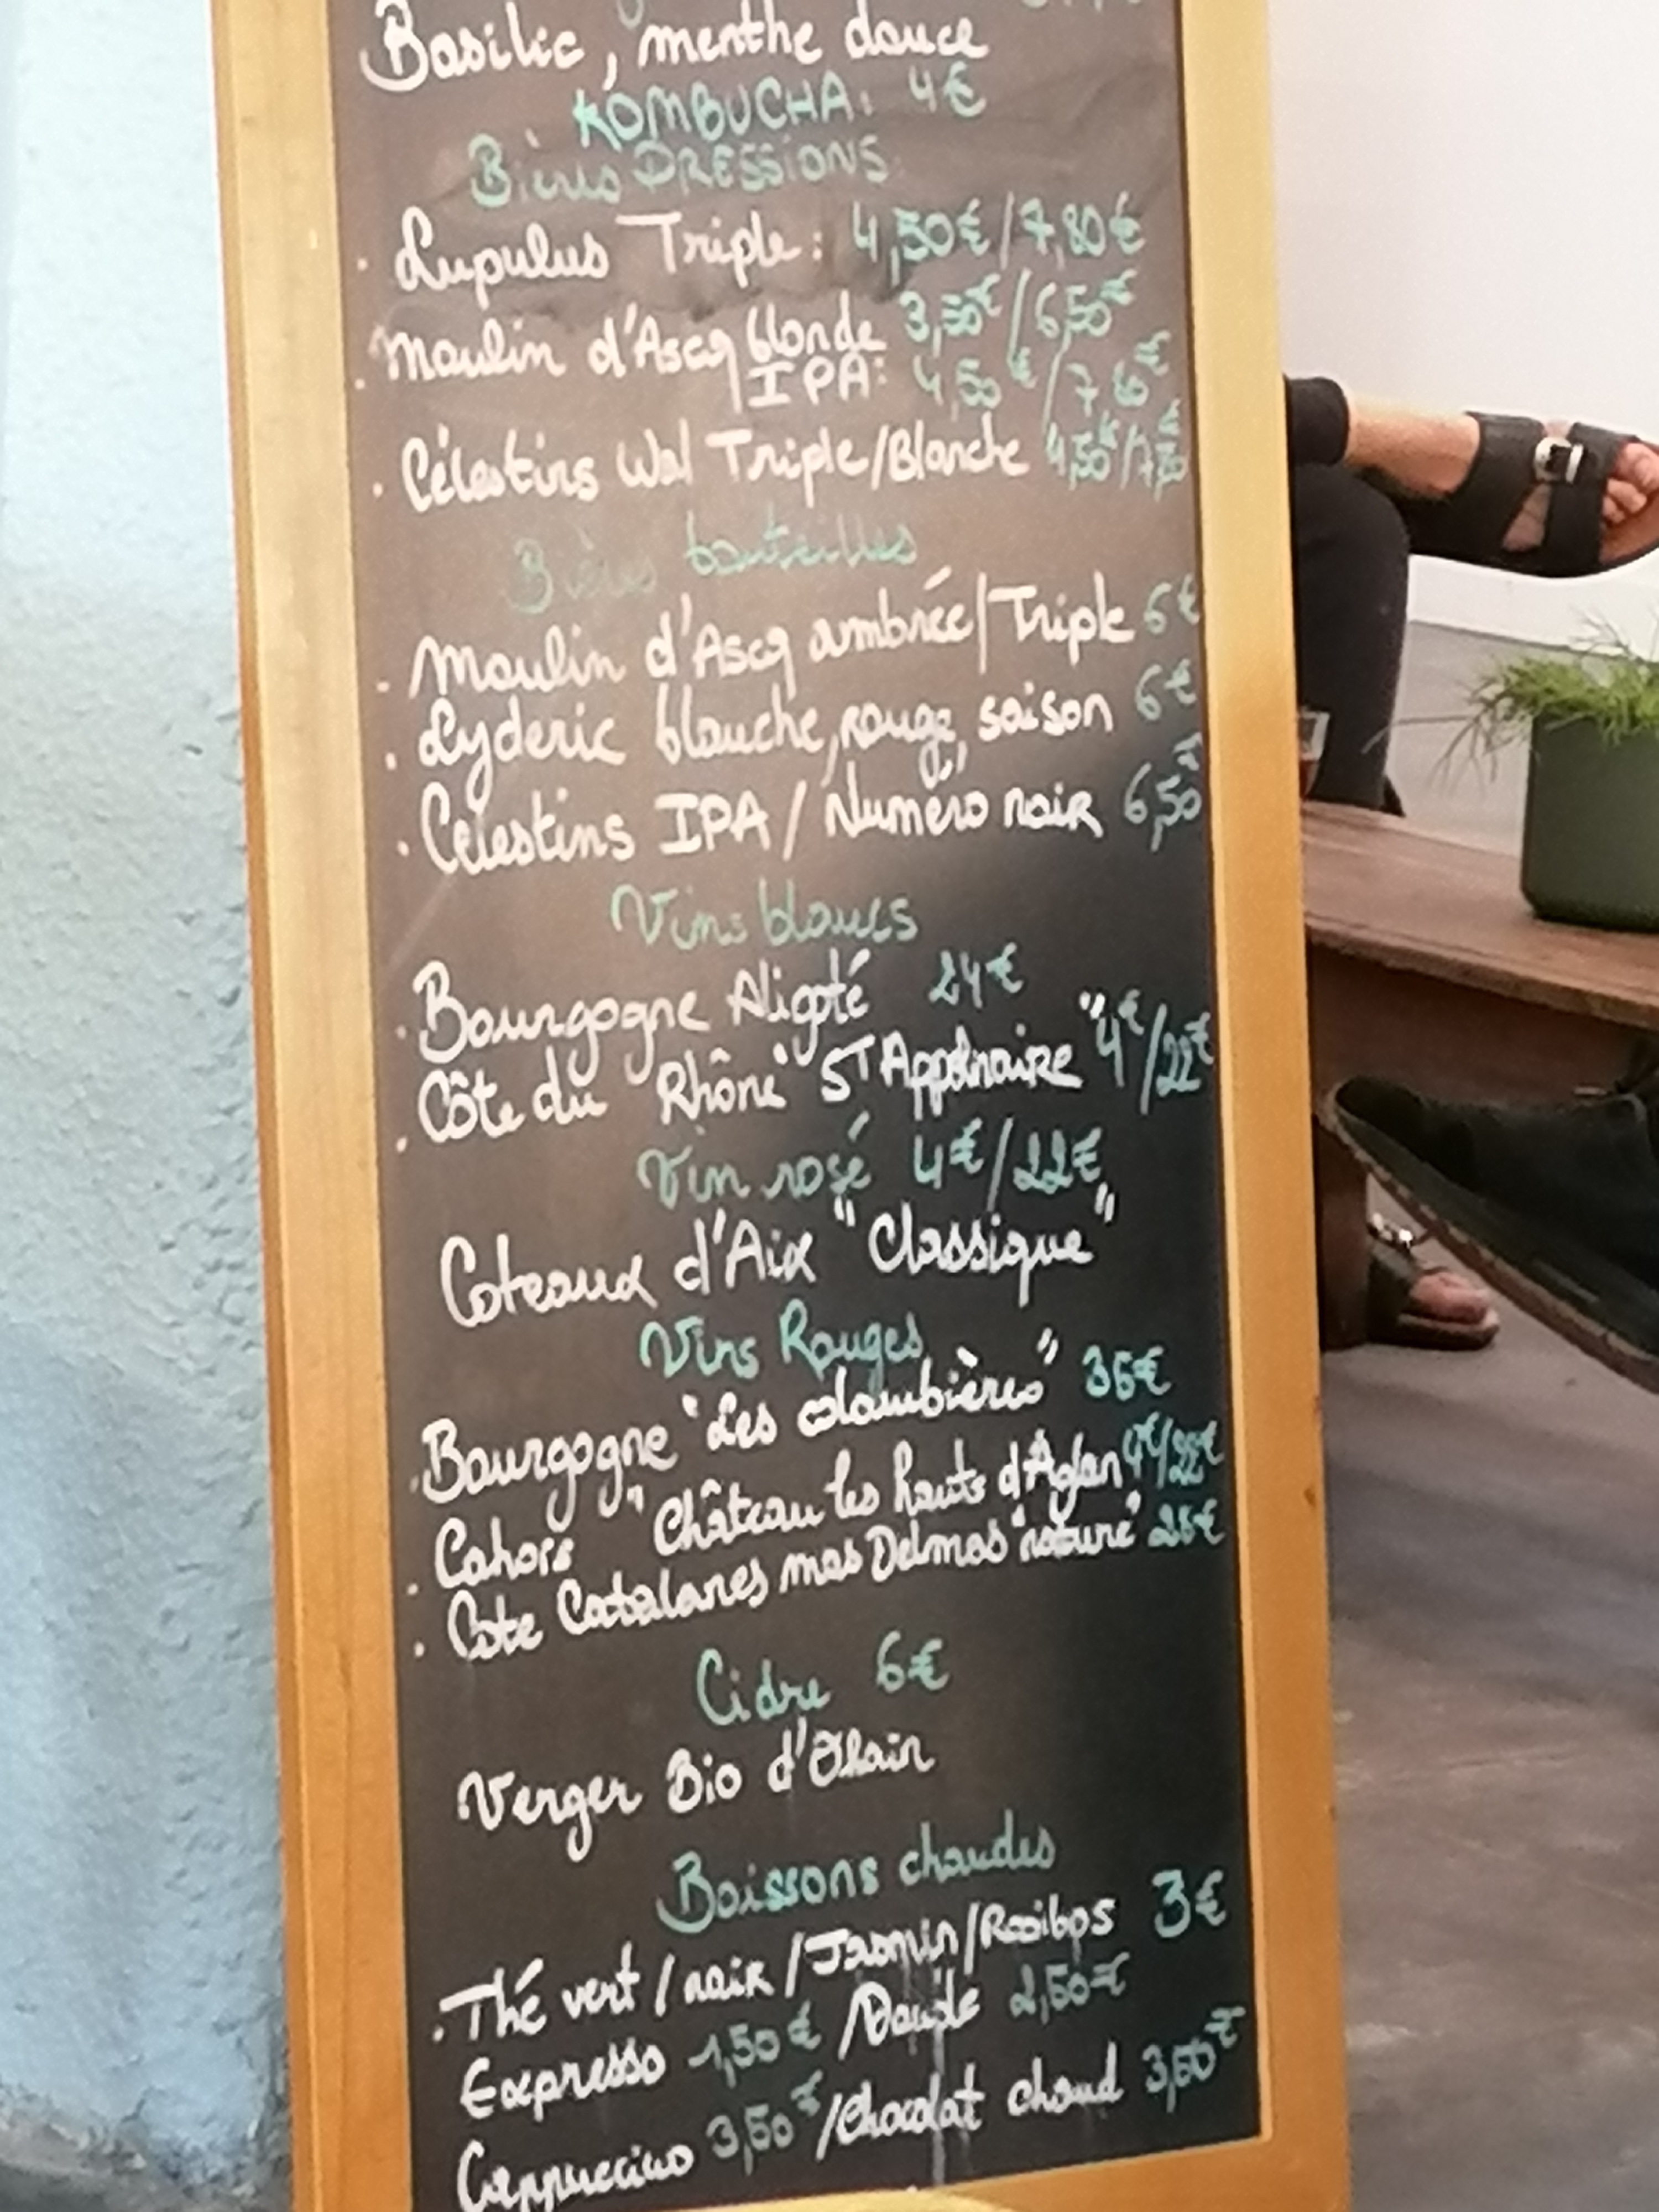 Basilic, menthe douce
KOMBUCHA: 4€
Bières PRESSIONS
. Lupulus Triple : 4,50€/7,80€
. Moulin d'Ascq blonde 3,50€/6,50€
IPA: 4,50€/7,80€
. Célestins Wal Triple/Blanche 4,50€/7,80€
Bières bouteilles
. Moulin d'Ascq ambrée/Triple 6€
. Lyderic blanche, rouge, saison 6€
. Célestins IPA / Numéro noir 6,50€
Vins blancs
. Bourgogne Aligoté 24€
. Côte du Rhône "ST Appolinaire" 4€/22€
Vin rosé 4€/22€
Coteaux d'Aix "Classique"
Vins Rouges
. Bourgogne "Les colombières" 36€
. Cahors "Château les hauts d'Aglan 4€/22€
. Côte Catalanes mas Delmas "nature" 26€
Cidre 6€
Verger Bio d'Ohain
Boissons chaudes
. Thé vert / noir / Jasmin / Rooibos 3€
Expresso 1,50€ / Double 2,50€
Cappuccino 3,50€ / Chocolat chaud 3,50€